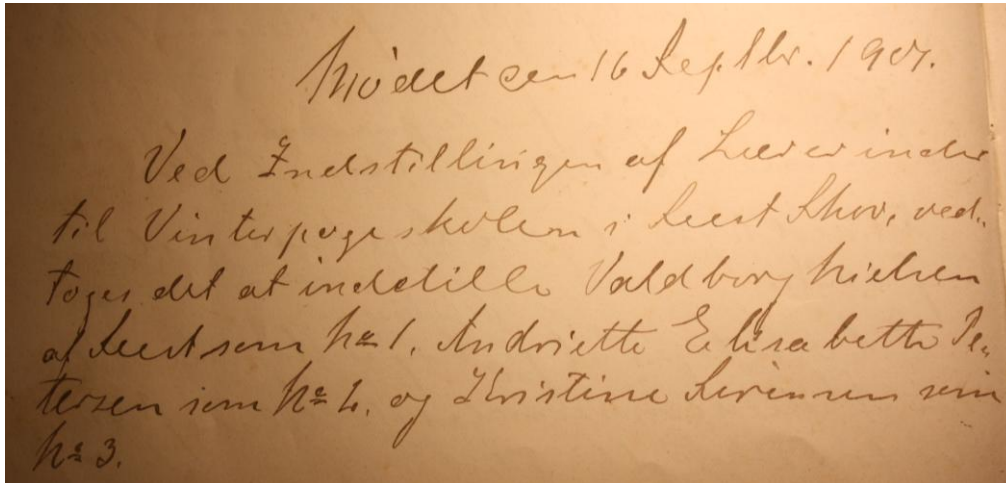 Mödet den 16 Septbr. 1901.
Ved Indstillingen af Lærerinder
til Vinterpogeskolen i Seest Skov, ved-
toges det at indstille Valdborg Nielsen
af Seest som No 1. Andriette Elisabette Pe-
tersen som No 2. og Kristine Sörensen som
No 3.